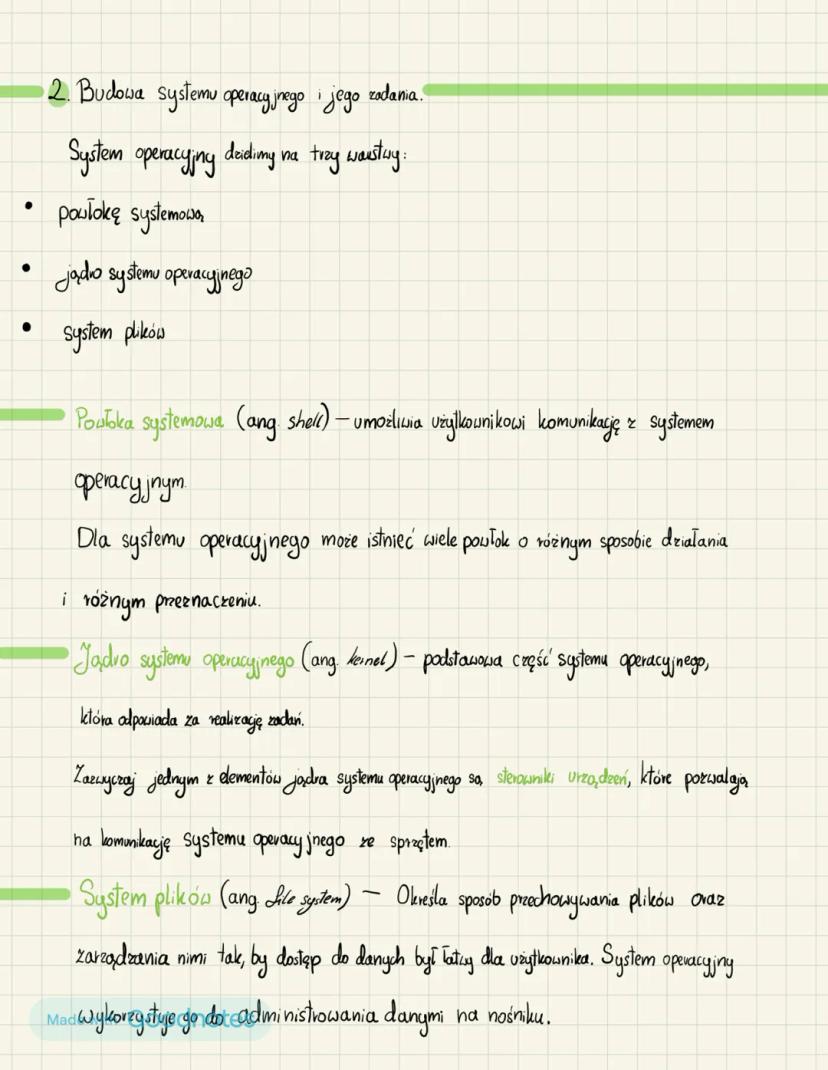 2. Budowa systemu operacyjnego i jego zadania.
System operacyjny dzielimy na trzy warstwy:
• powłokę systemową
• jądro systemu operacyjnego
• system plików
Powłoka systemowa (ang. shell) – umożliwia użytkownikowi komunikację z systemem
operacyjnym.
Dla systemu operacyjnego może istnieć wiele powłok o różnym sposobie działania
i różnym przeznaczeniu.
Jądro systemu operacyjnego (ang. kernel) – podstawowa część systemu operacyjnego,
która odpowiada za realizację zadań.
Zazwyczaj jednym z elementów jądra systemu operacyjnego są sterowniki urządzeń, które pozwalają
na komunikację systemu operacyjnego ze sprzętem.
System plików (ang. file system) – Określa sposób przechowywania plików oraz
zarządzania nimi tak, by dostęp do danych był łatwy dla użytkownika. System operacyjny
wykorzystuje go do administrowania danymi na nośniku.
Made with Goodnotes